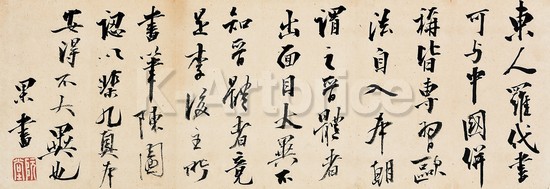 東人羅代書
可与中國併
稱皆專習歐
法自入本朝
謂之晉體者
出面目大異不
知晉體者竟
是李後主所
書筆陳圖
認以真本
安得不大異也
果書
K-Artprice